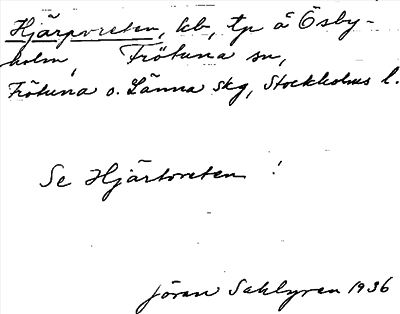 Hjärpvreten, lb, tp å Ösby-
holm, Frötuna sn,
Frötuna o. Länna skg, Stockholms l.
Se Hjärtvreten!
Jöran Sahlgren 1936